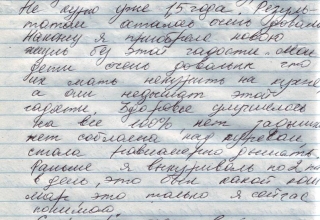 Не курю уже 15 года. Резуль-
татом осталась очень довольна
Наконец я приобрела новою
жизнь без этой гадости. Мои
дети очень довольны что
их мать не курит на кухне
а они не дышат этой
гадости. Здоровье улучшелось
на все 100% нет задышки
нет соблазна над куревом
стала равномерно дышать.
Раньше я выкуривала по 2 п
в день, это был какой кош
мар это только я сейчас
понимаю